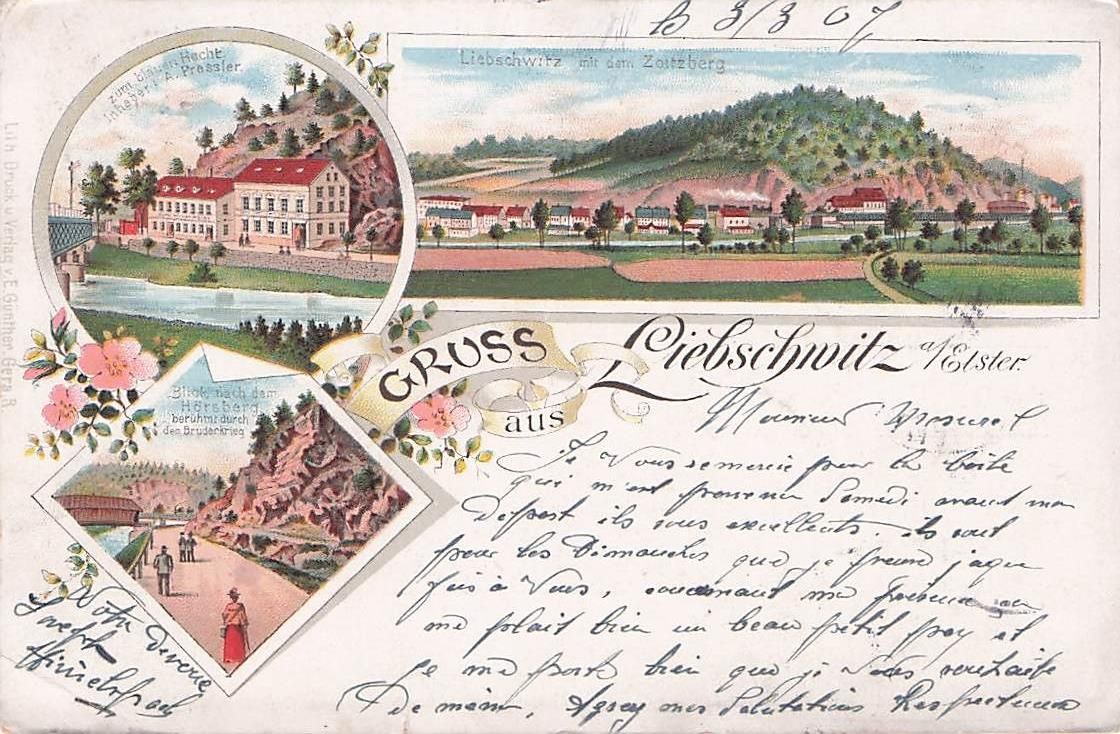 le 3/3 07
zum blauen Hecht
Inhaber: A. Pressler.
Liebschwitz mit dem Zoitzberg
Lith. Druck u. Verlag v. E. Günther, Gera R.
GRUSS
aus
Liebschwitz a/Elster.
Blick nach dem
Hörsberg
berühmt durch
den Bruderkrieg
Monsieur
Je Vous remercie pour la boite
qui m'est Samedi avant mon
Depart ils sous excellents, ils sont
pour les Dimanches que je
à Vous, ma
me plait bien un beau petit pay et
Je me porte bien que je vous souhaite
De même, Agrey mes Salutations Respectueux
Votre